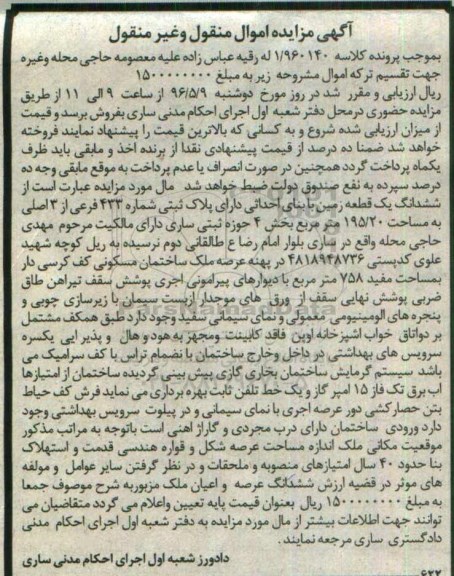 آگهی مزایده اموال منقول وغیر منقول
بموجب پرونده کلاسه ۱/۹۶۰۱۴۰ له رقیه عباس زاده علیه معصومه حاجی محله وغیره
جهت تقسیم ترکه اموال مشروحه زیر به مبلغ ۱۵۰۰۰۰۰۰۰۰
ریال ارزیابی و مقرر شد در روز مورخ دوشنبه ۹۶/۵/۹ از ساعت ۹ الی ۱۱ از طریق
مزایده حضوری درمحل دفتر شعبه اول اجرای احکام مدنی ساری بفروش برسد و قیمت
از میزان ارزیابی شده شروع و به کسانی که بالاترین قیمت را پیشنهاد نمایند فروخته
خواهد شد ضمنا ده درصد از قیمت پیشنهادی نقدا از برنده اخذ و مابقی باید ظرف
یکماه پرداخت گردد همچنین در صورت انصراف یا عدم پرداخت به موقع مابقی وجه ده
درصد سپرده به نفع صندوق دولت ضبط خواهد شد مال مورد مزایده عبارت است از
ششدانگ یک قطعه زمین با بنای احداثی دارای پلاک ثبتی شماره ۴۳۳ فرعی از ۳ اصلی
به مساحت ۱۹۵/۲۰ متر مربع بخش ۴ حوزه ثبتی ساری دارای مالکیت مرحوم مهدی
حاجی محله واقع در ساری بلوار امام رضا ع طالقانی دوم نرسیده به ریل کوچه شهید
علوی کدپستی ۴۸۱۸۹۴۸۷۳۶ در پهنه عرصه ملک ساختمان مسکونی کف کرسی دار
بمساحت مفید ۷۵۸ متر مربع با دیوارهای پیرامونی اجری پوشش سقف تیراهن طاق
ضربی پوشش نهایی سقف از ورق های موجدار ازبست سیمان با زیرسازی چوبی و
پنجره های الومینیومی معمولی و نمای سیمانی سفید وجود دارد طبق همکف مشتمل
بر دواتاق خواب اشپزخانه اوپن فاقد کابینت ومجهز به هود و هال و پذیر ایی یکسره
سرویس های بهداشتی در داخل وخارج ساختمان با انضمام تراس با کف سرامیک می
باشد سیستم گرمایش ساختمان بخاری گازی پیش بینی گردیده ساختمان از امتیازها
اب برق تک فاز ۱۵ امپر گاز و یک خط تلفن ثابت بهره برداری می نماید فرش کف حیاط
بتن حصارکشی دور عرصه اجری با نمای سیمانی و در پیلوت سرویس بهداشتی وجود
دارد ورودی ساختمان دارای درب مجردی و گاراژ اهنی است باتوجه به مراتب مذکور
موقعیت مکانی ملک اندازه مساحت عرصه شکل و قواره هندسی قدمت و استهلاک
بنا حدود ۴۰ سال امتیازهای منصوبه و ملحقات و در نظر گرفتن سایر عوامل و مولفه
های موثر در قضیه ارزش ششدانگ عرصه و اعیان ملک مزبوربه شرح موصوف جمعا
به مبلغ ۱۵۰۰۰۰۰۰۰۰ ریال بعنوان قیمت پایه تعیین واعلام می گردد متقاضیان می
توانند جهت اطلاعات بیشتر از مال مورد مزایده به دفتر شعبه اول اجرای احکام مدنی
دادگستری ساری مرجعه نمایند.
دادورز شعبه اول اجرای احکام مدنی ساری
۶۲۲